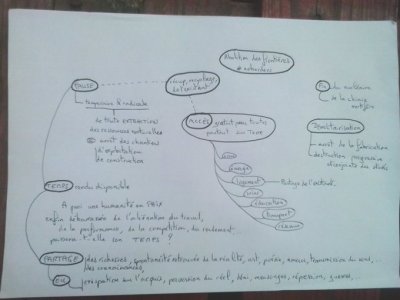 Abolition des frontières
PAUSE
récup, recyclage,
temporaire & radicale
de toute EXTRACTION
des ressources naturelles
arrêt des chantiers
d'exploitation
de construction
ACCÈS gratuit pour toutes
partout sur Terre
énergie
logement
Partage de l'existant
soins
éducation
transport
réseau
Fin du nucléaire
de la chimie
Démilitarisation
arrêt de la fabrication
destruction progressive
TEMPS rendu disponible
À quoi une humanité en PAIX
enfin débarrassée de l'aliénation du travail,
de la performance, de la compétition, du rendement...
passera-t-elle son TEMPS ?
PARTAGE des richesses, spontanéité retrouvée de la réalité, art, poésie, amour, transmission du savoir...
des connaissances,
OU crispation sur l'acquis, possession du réel, déni, mensonges, répression, guerre...